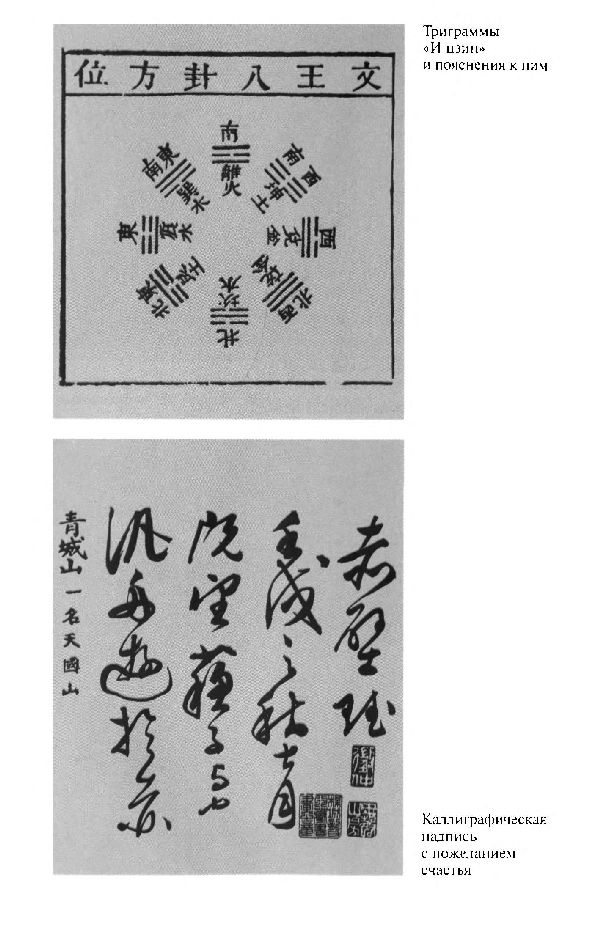 Триграммы
«И цзин»
и пояснения к ним
文王八卦方位
南
離火
西南
坤土
西
兌金
西北
乾金
北
坎水
東北
艮土
東
震木
東南
巽木
赤壁賦
壬戌之秋七月
既望蘇子与客
汎舟遊於赤
青城山一名天國山
Каллиграфическая
надпись
с пожеланием
счастья